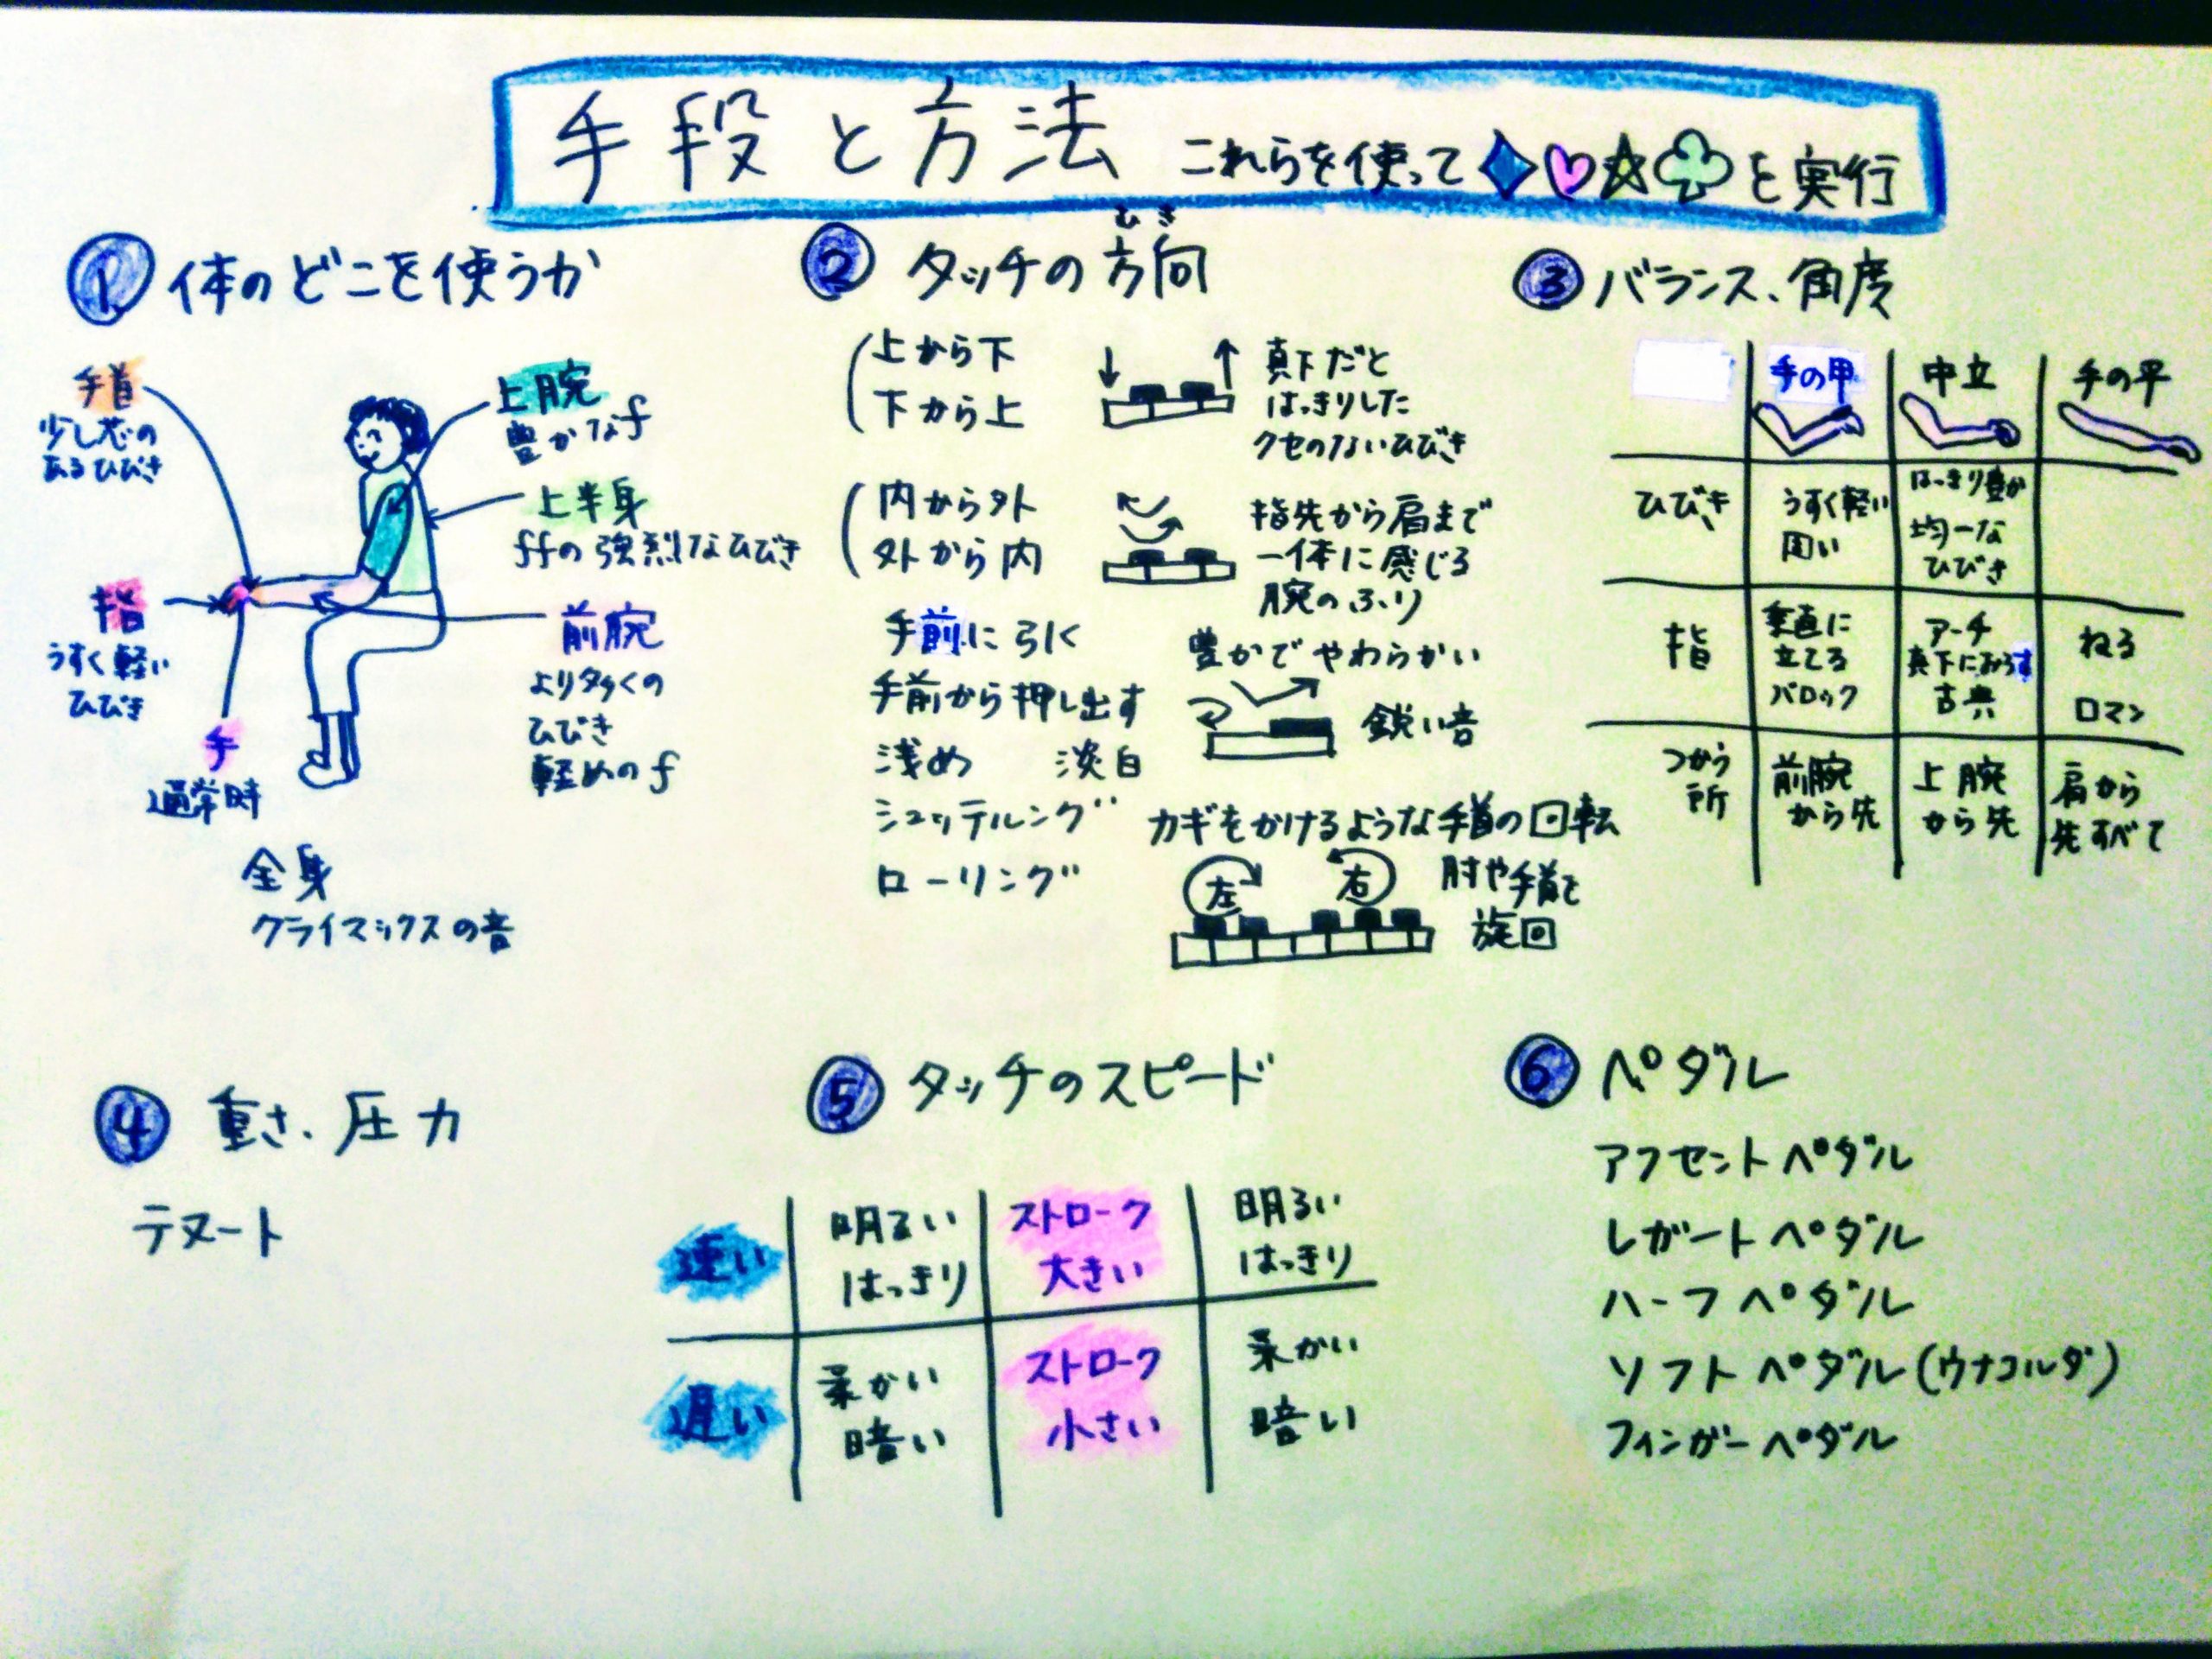 手段と方法 これらを使って♦♡☆♧を実行
① 体のどこを使うか
手首
少し芯の
あるひびき
上腕
豊かなf
上半身
ffの強烈なひびき
指
うすく軽い
ひびき
前腕
より多くの
ひびき
軽めのf
手
通常時
全身
クライマックスの音
② タッチの方向
むき
上から下
下から上
真下だと
はっきりした
クセのないひびき
内から外
外から内
指先から肩まで
一体に感じる
腕のふり
手前に引く
豊かでやわらかい
手前から押し出す
鋭い音
浅め 淡白
シュッテルング カギをかけるような手首の回転
ローリング
左 右
肘や手首を
旋回
③ バランス、角度
手の甲 中立 手の平
ひびき
うすく軽い
固い
はっきり豊か
均一な
ひびき
指
垂直に
立てる
バロック
アーチ
真下におろす
古典
ねる
ロマン
つかう
所
前腕
から先
上腕
から先
肩から
先すべて
④ 重さ、圧力
テヌート
⑤ タッチのスピード
速い
明るい
はっきり
ストローク
大きい
明るい
はっきり
遅い
柔かい
暗い
ストローク
小さい
柔かい
暗い
⑥ ペダル
アクセントペダル
レガートペダル
ハーフペダル
ソフトペダル(ウナコルダ)
フィンガーペダル